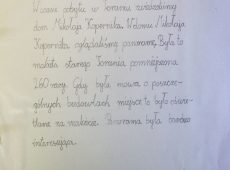 W czasie pobytu w Toruniu zwiedziliśmy
dom Mikołaja Kopernika. W domu Mikołaja
Kopernika oglądaliśmy panoramę. Była to
makieta starego Torunia pomniejszona
260 razy. Gdy była mowa o poszcze-
gólnych budowlach miejsce to było oświe-
tlane na makiecie. Panorama była bardzo
interesująca.